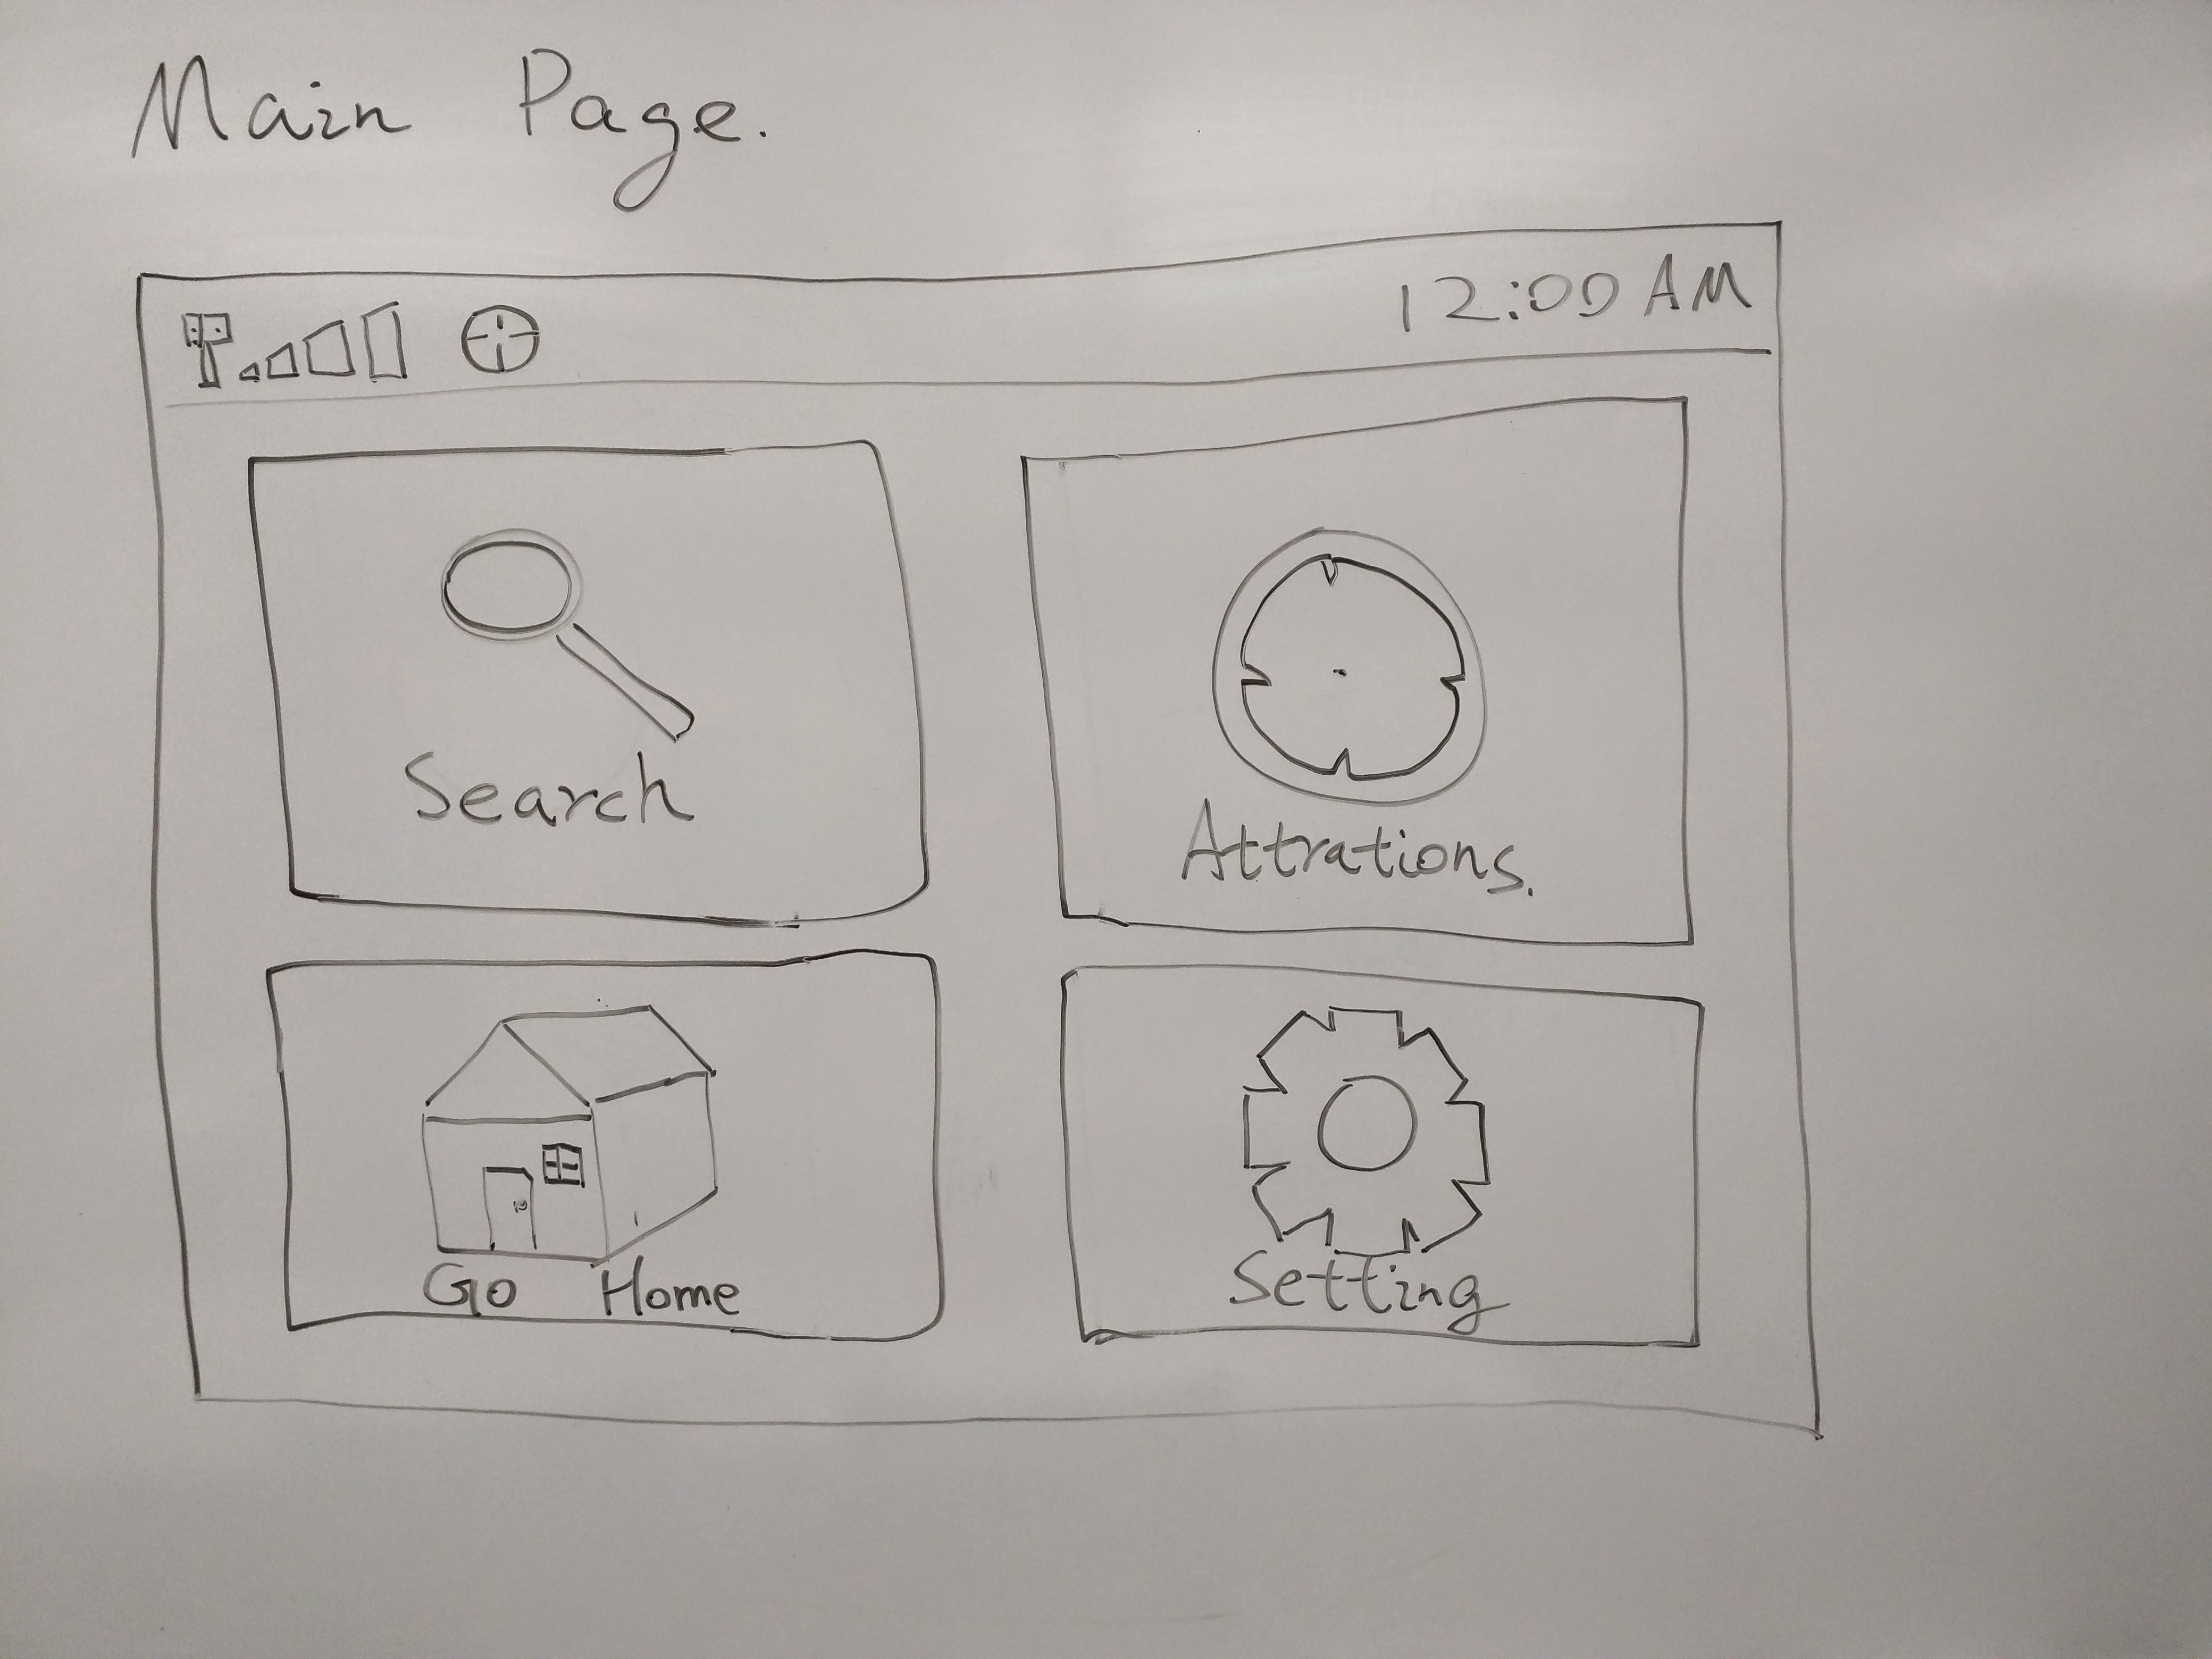 Main Page.
12:00 AM
Search
Attrations.
Go Home
Setting